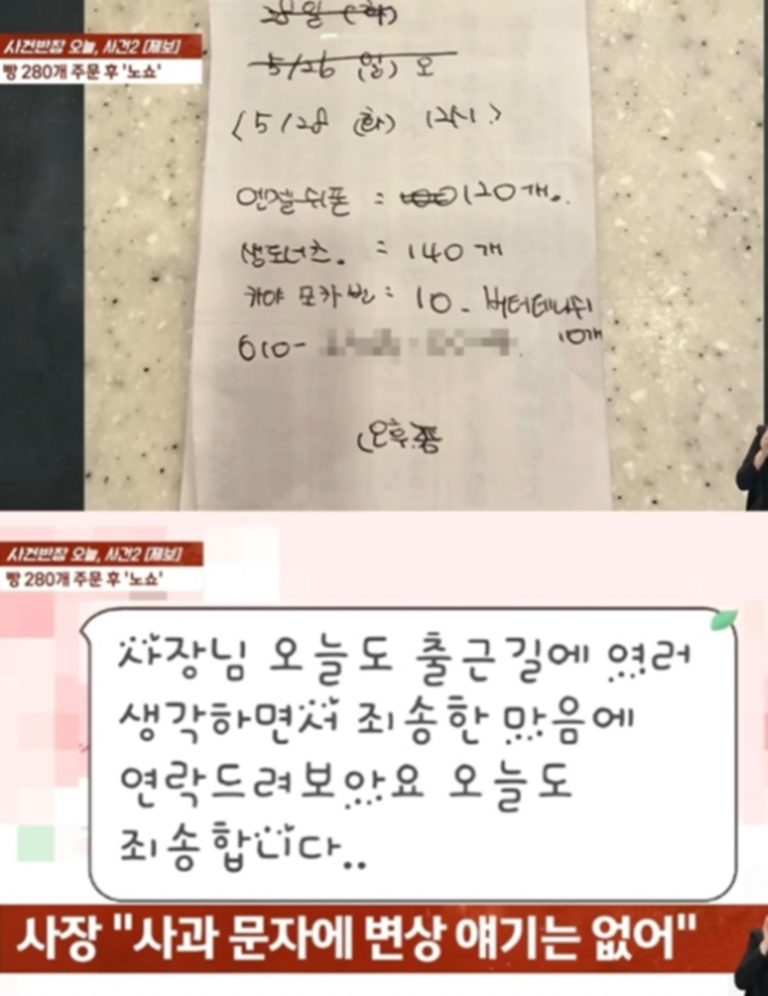 28일 (화)
사건반장 오늘, 사건2 [제보]
빵 280개 주문 후 '노쇼'
5/26 (일) 오
(5/28 (화) 12시)
엔젤쉬폰 : 100 120개.
생도너츠. : 140개
카야 모카번 : 10 - 버터데니쉬
10개
010-
(오후쯤
사건반장 오늘, 사건2 [제보]
빵 280개 주문 후 '노쇼'
사장님 오늘도 출근길에 여러
생각하면서 죄송한 마음에
연락드려보아요 오늘도
죄송합니다..
사장 "사과 문자에 변상 얘기는 없어"